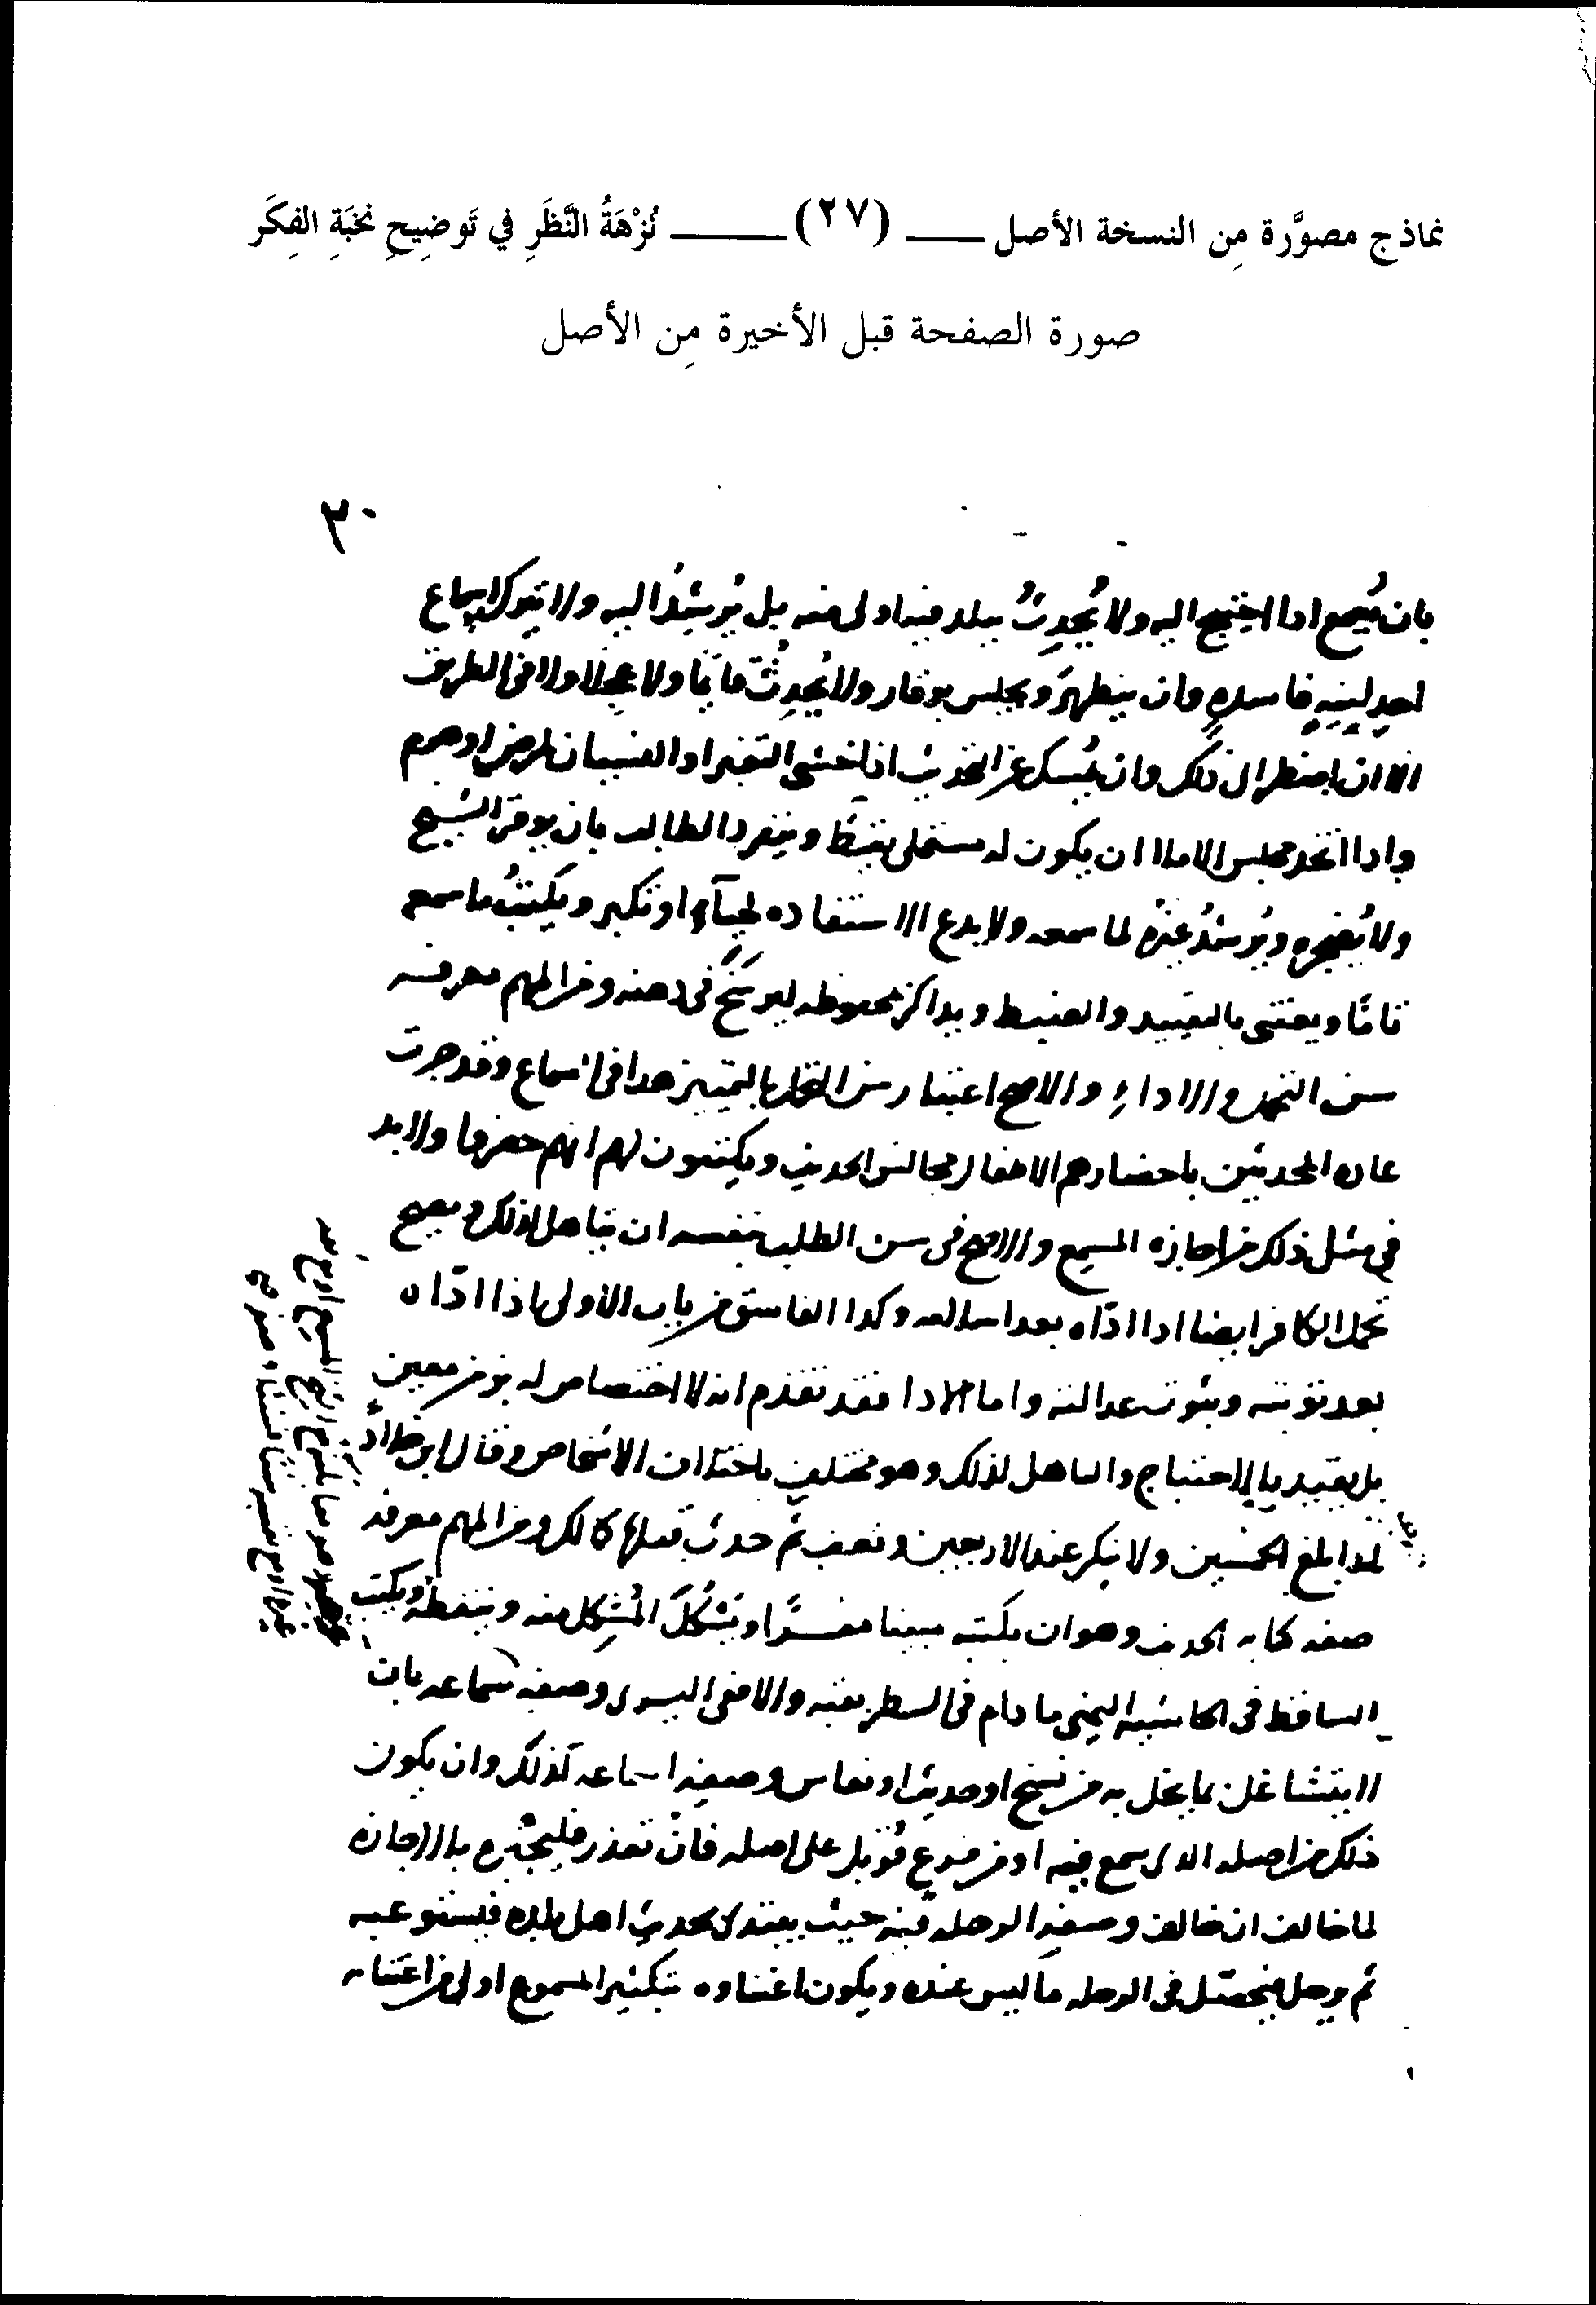 نماذج مصوَّرة مِن النسخة الأصل (٢٧) نُزْهَةُ النَّظَرِ في تَوضِيحِ نخبَةِ الفِكَر
صورة الصفحة قبل الأخيرة مِن الأصل
٣٠
بان يُسمع اذا احتيج اليه ولا يُحدِثُ ببلد فيه اولى منه بل يُرشِدُ اليه ولا يترك اسماع
احدٍ لنيةٍ فاسدةٍ وان يتطهرَ ويجلس بوقار ولا يُحدِثُ قائمًا ولا عجِلا ولا في الطريق
الا ان اضطر الى ذلك وان يُمسك عن التحديث اذا خشى التغير او النسيان لمرض او هرم
واذا اتخذ مجلس الاملا ان يكون له مستملى يقظ وينفرد الطالب بان يوقر الشيخ
ولا يُضجره ويُرشدُ غيرَه لما سمعه ولا يدع الاستفاده لحيآءٍ او تكبر ويكتبُ ما سمعه
تامًا ويعتنى بالتقييد والضبط ويذاكر بمحفوظه ليرسَخَ فى ذهنه ومن المهم معرفه
سن التحمل والاداءِ والاصح اعتبار سن التحمل بالتمييز هذا فى السماع وقد جرت
عاده المحدثين باحضارهم الاطفال مجالس الحديث ويكتبون لهم انهم حضروا ولا بد
في مثل ذلك من اجازه المسمع والاصح فى سن الطلب بنفسه ان يتاهل لذلك ويصح
تحمل الكافر ايضا اذا ادّاه بعد اسلامه وكذا الفاسق من باب الأولى اذا ادّاه
بعد توبته وثبوت عدالته واما الادا فقد تقدم انه لا اختصاص له بزمن معين
بل يقيد بالاحتياج والتاهل لذلك وهو مختلف باختلاف الاشخاص وقال ابن خلادٍ
اذا بلغ الخمسين ولا ينكر عند الاربعين وتعقب بمن حدث قبلها كمالك ومن المهم معرفه
صفه كتابه الحديث وهو ان يكتبه مبينا مفسرًا ويَشكُلَ المُشكِل منه وينقطه ويكتب
الساقط فى الحاشيه اليمنى ما دام فى السطر بقيه والا ففى اليسرى وصفه سماعه بان
لا يتشاغل بما يخل به من نسخ او حديث او نعاس وصفه اسماعه كذلك وان يكون
ذلك من اصله الذى سمع فيه او من فرع قُوبل على اصله فانْ تعذر فليجبُره بالاجازه
لما خالف ان خالف وصفه الرحله فيه حيث يبتدئ بحديث اهل بلده فيستوعبه
ثم يرحل فيحصّل فى الرحله ما ليس عنده ويكون اعتناوه بتكثير المسموع اولى من اعتنايه